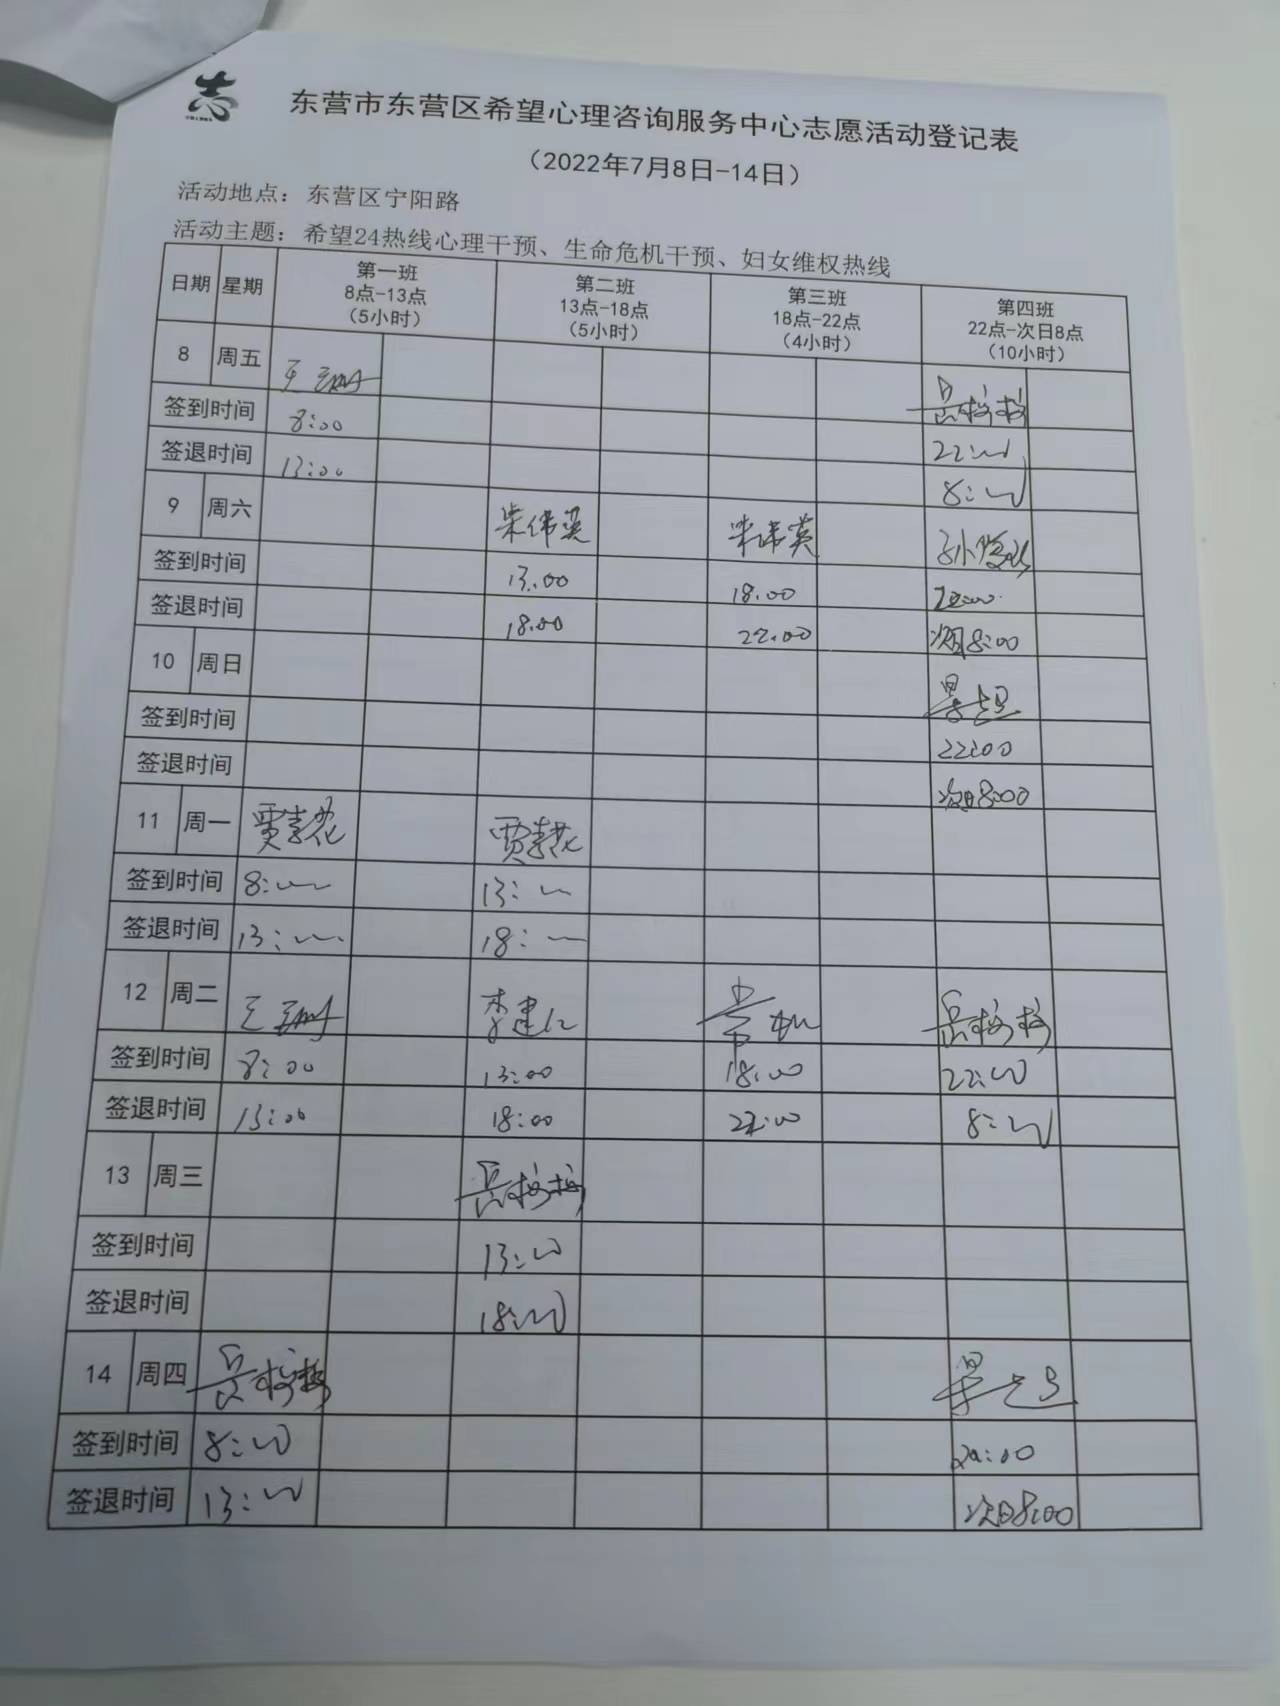 志
东营市东营区希望心理咨询服务中心志愿活动登记表
（2022年7月8日-14日）
活动地点：东营区宁阳路
活动主题：希望24热线心理干预、生命危机干预、妇女维权热线
日期 星期 第一班 8点-13点 （5小时） 第二班 13点-18点 （5小时） 第三班 18点-22点 （4小时） 第四班 22点-次日8点 （10小时）
8 周五 王
签到时间 8:00 22:00
签退时间 13:00 8:00
9 周六 朱伟英 朱伟英
签到时间 13.00 18.00 22:00
签退时间 18.00 22.00 次日8:00
10 周日
签到时间 22:00
签退时间 次日8:00
11 周一 贾春花 贾春花
签到时间 8:00 13:00
签退时间 13:00 18:00
12 周二 王 李建仁
签到时间 8:00 13:00 18:00 22:00
签退时间 13:00 18:00 22:00 8:00
13 周三
签到时间 13:00
签退时间 18:00
14 周四
签到时间 8:00 22:00
签退时间 13:00 次日8:00